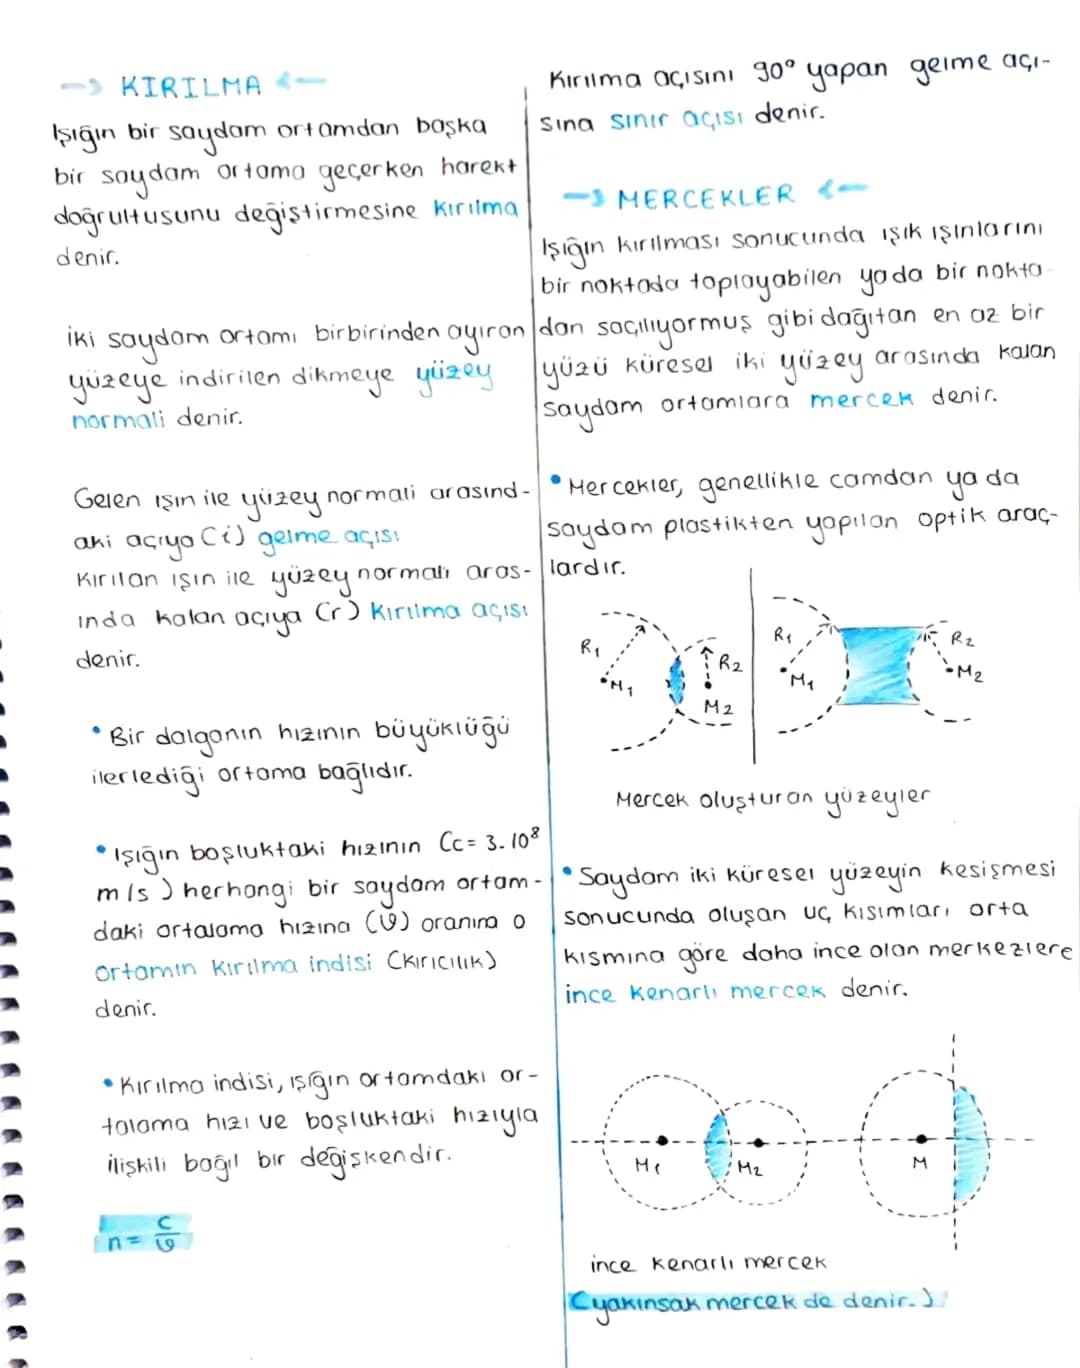 → KIRILMA ←
Işığın bir saydam ortamdan başka
bir saydam ortama geçerken harekt
doğrultusunu değiştirmesine kırılma
denir.
İki saydam ortamı birbirinden ayıran
yüzeye indirilen dikmeye yüzey
normali denir.
Gelen ışın ile yüzey normali arasınd-
aki açıya (i) gelme açısı
Kırılan ışın ile yüzey normalı aras-
ında kalan açıya (r) kırılma açısı
denir.
• Bir dalganın hızının büyüklüğü
ilerlediği ortama bağlıdır.
• Işığın boşluktaki hızının (c= 3.10⁸
m/s) herhangi bir saydam ortam-
daki ortalama hızına (υ) oranına o
ortamın kırılma indisi (kırıcılık)
denir.
• Kırılma indisi, ışığın ortamdaki or-
talama hızı ve boşluktaki hızıyla
ilişkili bağıl bir değişkendir.
n = c/υ
Kırılma açısını 90° yapan gelme açı-
sına sınır açısı denir.
→ MERCEKLER ←
Işığın kırılması sonucunda ışık ışınlarını
bir noktada toplayabilen yada bir nokta-
dan saçılıyormuş gibi dağıtan en az bir
yüzü küresel iki yüzey arasında kalan
saydam ortamlara mercek denir.
• Mercekler, genellikle camdan ya da
saydam plastikten yapılan optik araç-
lardır.
R₁ M₁ R₂ M₂ R₁ M₁ R₂ M₂
Mercek oluşturan yüzeyler
• Saydam iki küresel yüzeyin kesişmesi
sonucunda oluşan uç kısımları orta
kısmına göre daha ince olan merkezlere
ince kenarlı mercek denir.
M₁ M₂ M
ince kenarlı mercek
(yakınsak mercek de denir.)